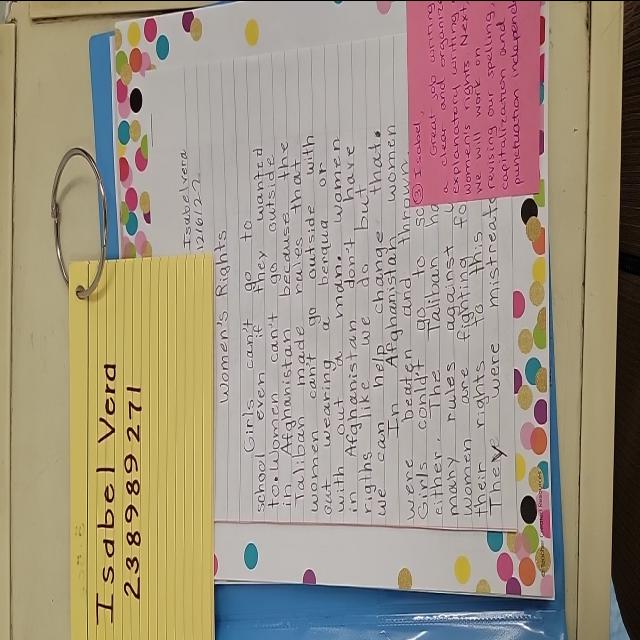 Isabel Vera
238989271
Isabelvera
12/6/22
Women's Rights
Girls can't go to
school even if they wanted
to. Women can't go outside
in Afghanistan because the
Taliban made rules that
women can't go outside with
out wearing a berqua or
with out a man. Women
in Afghanistan don't have
rigths like we do but
we can help change that.
In Afghanistan women
were beaten and thrown
Girls couldn't go to sc
either. The Taliban ha
many rules against w
Women are fighting fo
their rights to this
They were mistreate
☺ Isabel,
Great job writing
a clear and organize
explanatory writing
women's rights. Next,
we will work on
revising our spelling,
capitalization and
punctuation independe
© Teacher Created Resources